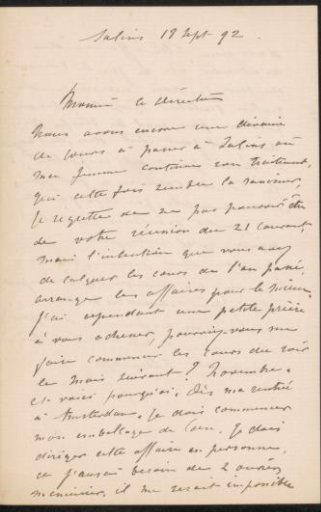 Salins 18 Sept 92.
Monsieur le directeur
Nous avons encore une dizaine
de jours à passer à Salins où
ma femme continue son traitement,
qui cette fois semble la ranimer,
Je regrette de ne pas pouvoir être
de votre réunion du 21 courant,
mais l'intention que vous avez
de calquer les cours de l'an passé,
arrange les affaires pour le mieux.
J'ai cependant une petite prière
à vous adresser, pourriez-vous me
faire commencer les cours du soir
le mois suivant? Novembre.
et voici pourquoi. Dès ma rentrée
à Amsterdam, je dois commencer
mon emballage de
Je dois
diriger cette affaire en personne,
et j'aurai besoin de 2 ouvriers
menuisiers, il me serait impossible